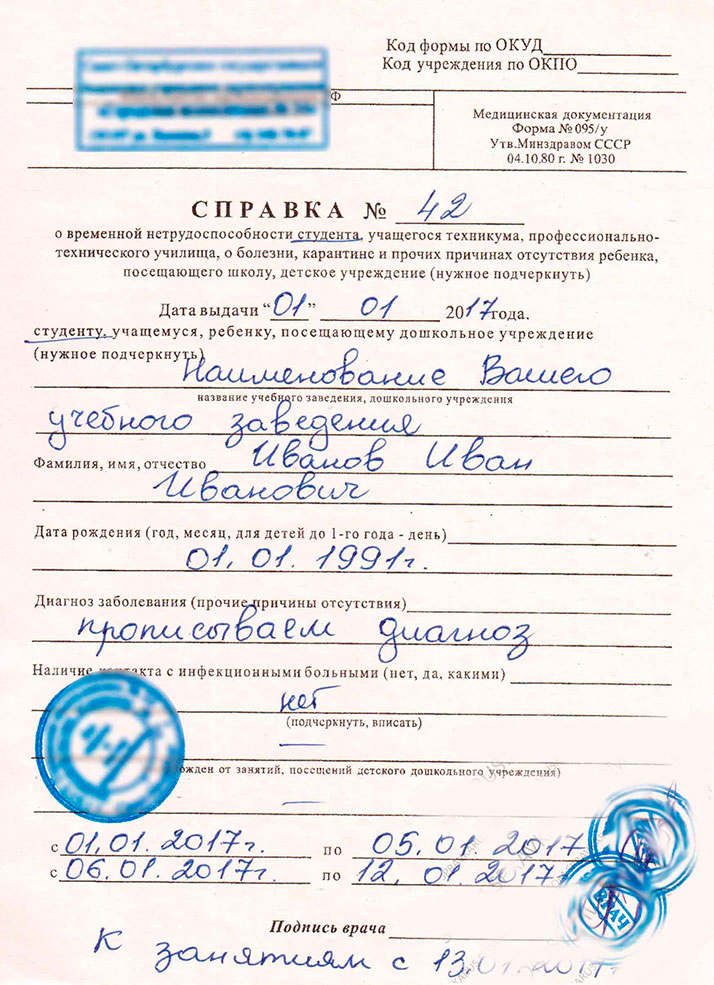 Код формы по ОКУД
Код учреждения по ОКПО
Ф
Медицинская документация
Форма № 095/у
Утв.Минздравом СССР
04.10.80 г. № 1030
СПРАВКА № 42
о временной нетрудоспособности студента, учащегося техникума, профессионально-
технического училища, о болезни, карантине и прочих причинах отсутствия ребенка,
посещающего школу, детское учреждение (нужное подчеркнуть)
Дата выдачи “01” 01 2017года.
студенту, учащемуся, ребенку, посещающему дошкольное учреждение
(нужное подчеркнуть)
Наименование Вашего
название учебного заведения, дошкольного учреждения
учебного заведения
Фамилия, имя, отчество Иванов Иван
Иванович
Дата рождения (год, месяц, для детей до 1-го года - день)
01.01.1991г.
Диагноз заболевания (прочие причины отсутствия)
прописываем диагноз
Наличие контакта с инфекционными больными (нет, да, какими)
нет
(подчеркнуть, вписать)
—
ожден от занятий, посещений детского дошкольного учреждения)
—
с 01.01.2017г. по 05.01.2017
с 06.01.2017г. по 12.01.2017г
ВРАЧ
Подпись врача
К занятиям с 13.01.2017г